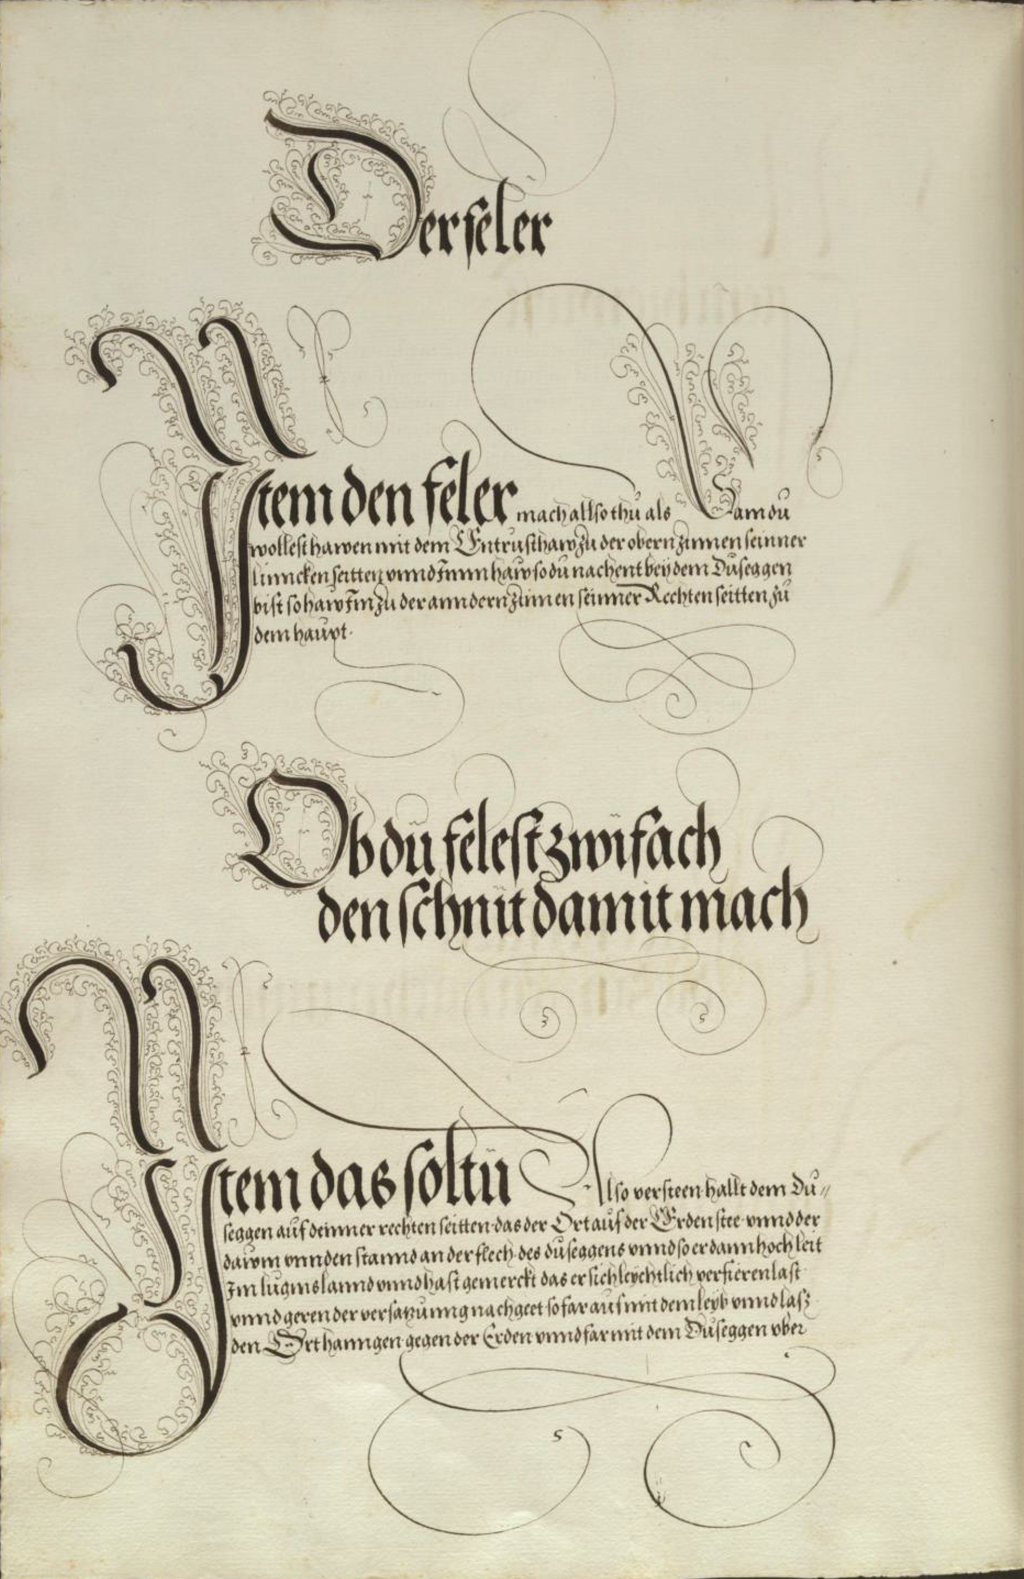 Der feler
Ytem den feler mach allso thu als Sam du
wollest hawen mit dem Entrusthaw zu der obern zinnen seinner
linncken seitten vnnd Inn haw so du nachent bey dem Duseggen
bist so haw Im zu der anndern zinnen seinner Rechten seitten zu
dem haupt.
Ob dü felest zwifach
den schnit damit mach
Ytem das soltu Also versteen. hallt dem Du//
seggen auf deinner rechten seitten. das der Ort auf der Erden stee. vnnd der
dawm vnnden stannd an der flech. des duseggens vnnd so er dann hoch leit
Im luginslannd vnnd hast gemerckt das er sich leychtlich verfieren last
vnnd geren der versatzunng nachgeet so far auf mit dem leyb vnnd lasz
den Ort hanngen gegen der Erden vnnd far mit dem Duseggen vber